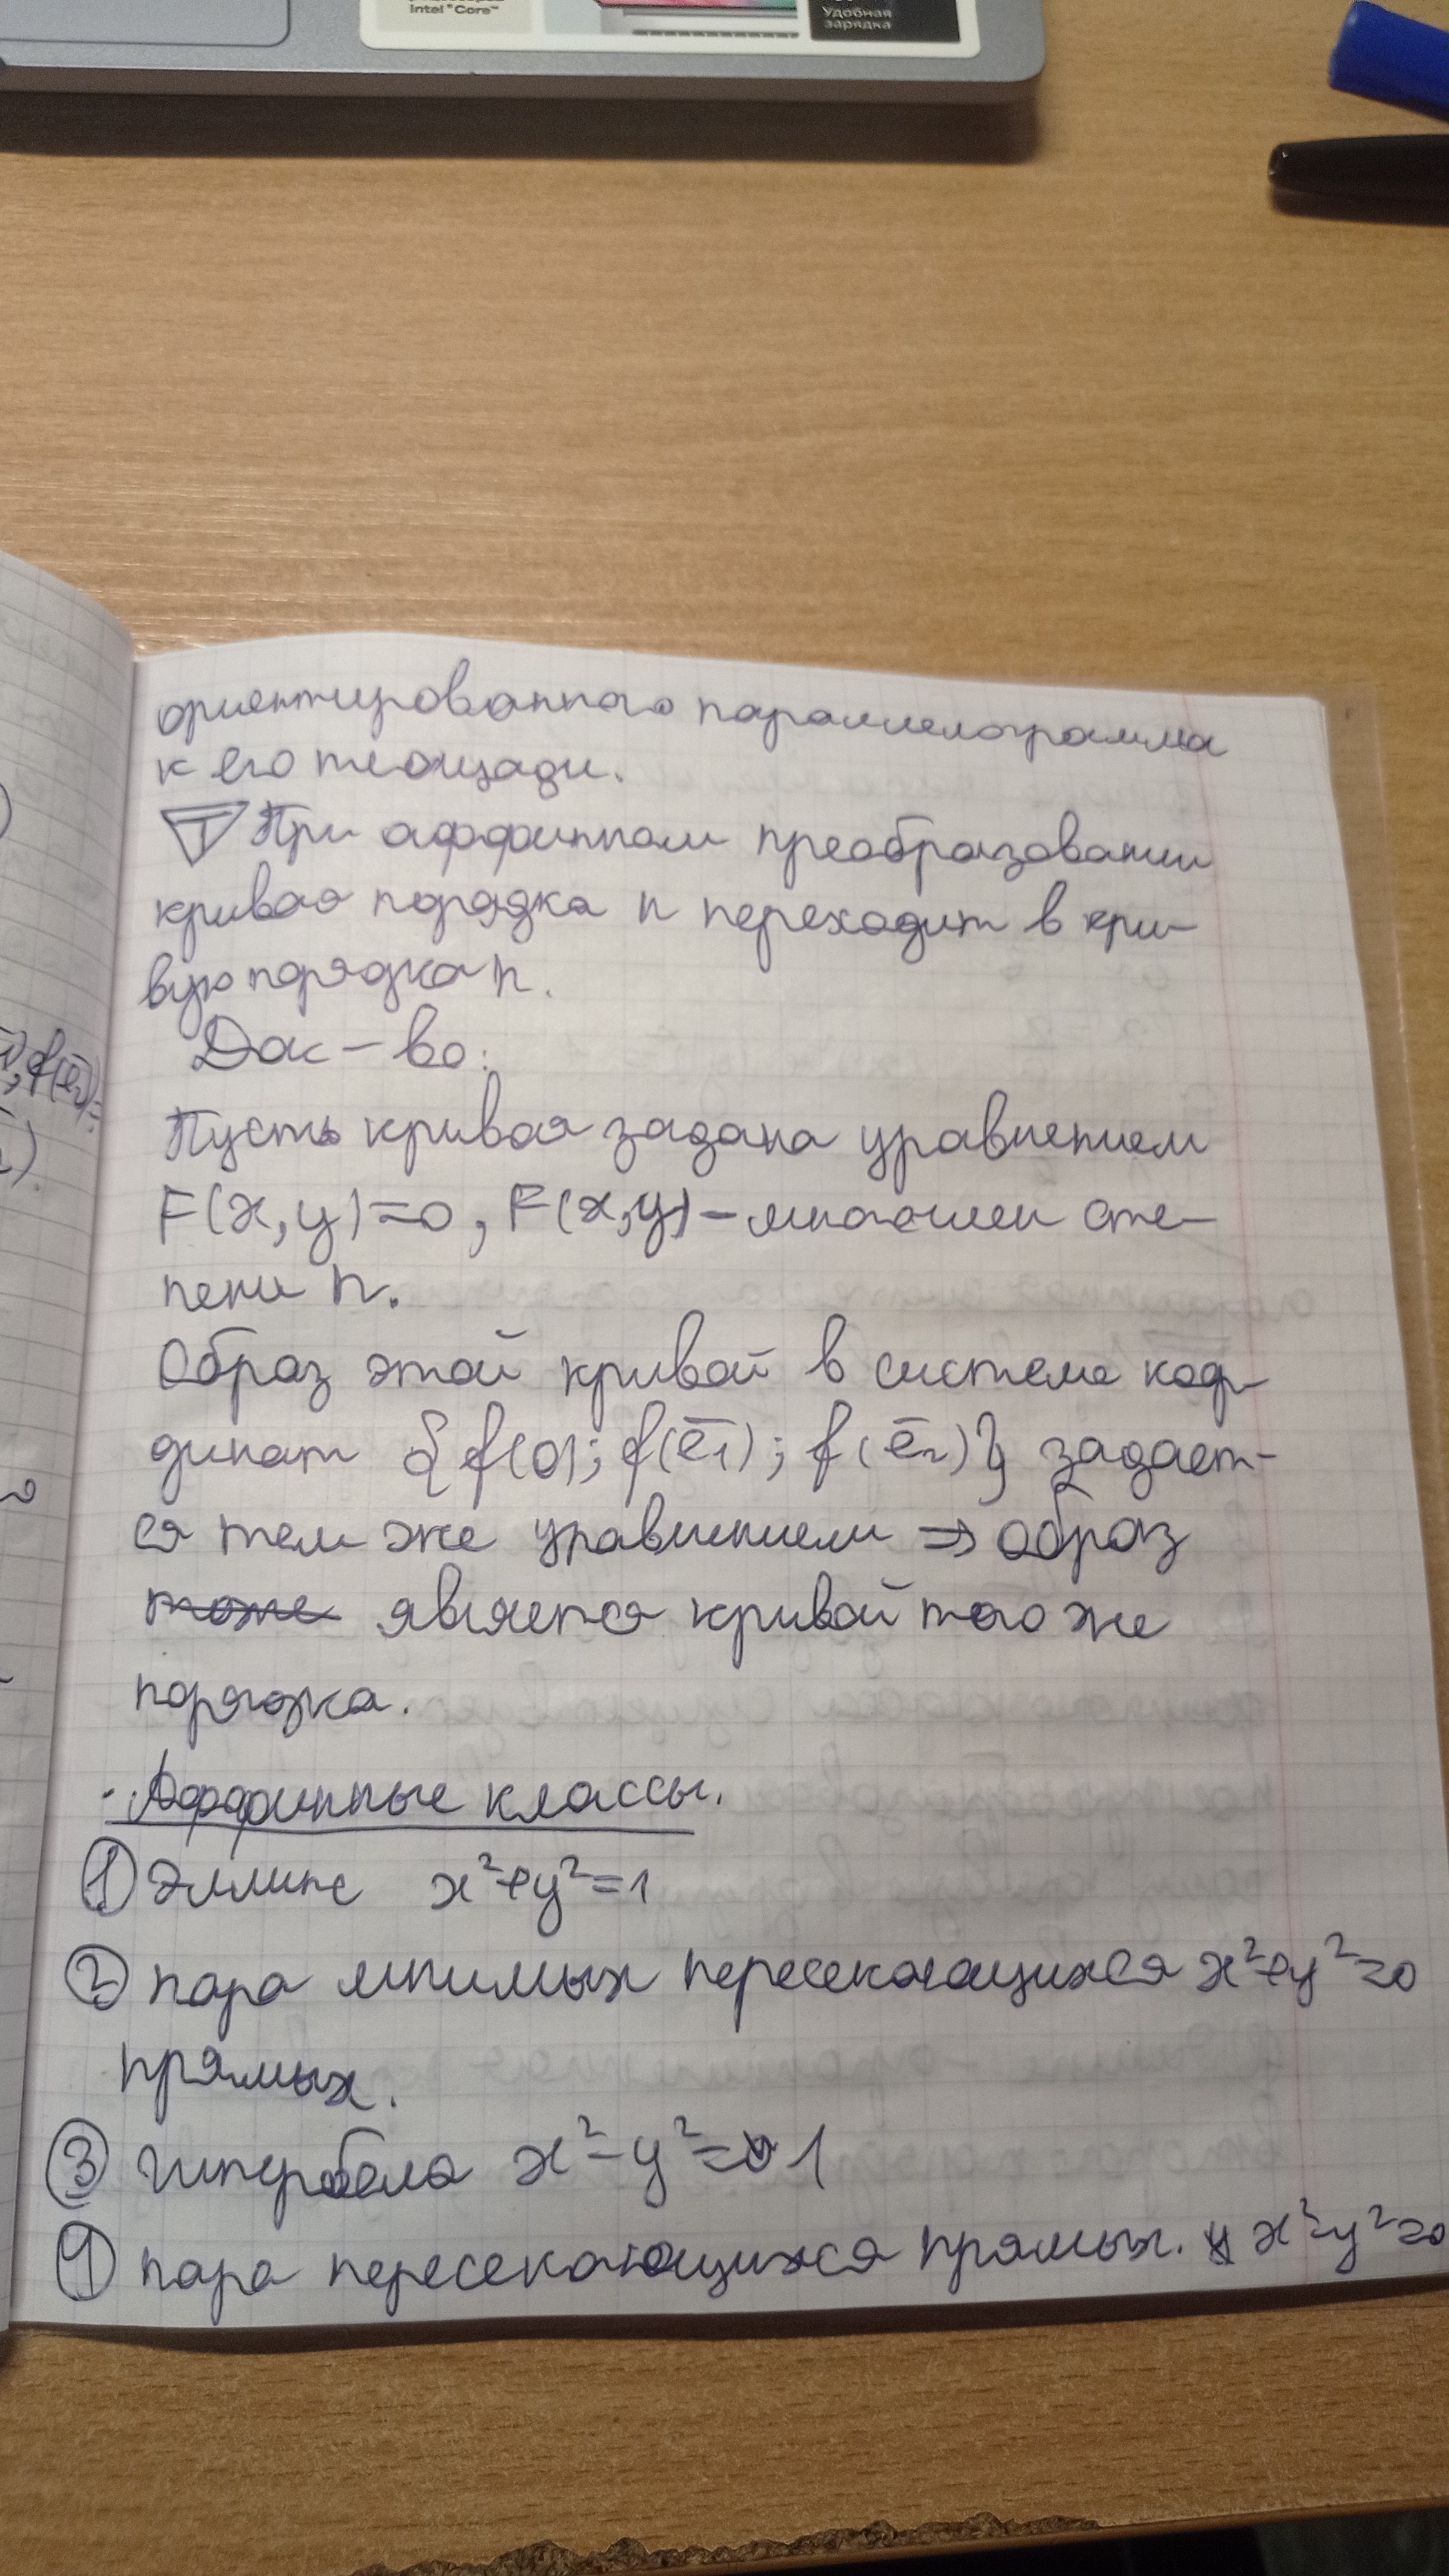 Intel® Core™
Удобная
зарядка
ориентированного параллелограмма
к его площади.
T При аффинном преобразовании
кривая порядка n переходит в кри-
вую порядка n.
Док-во:
Пусть кривая задана уравнением
F(x,y)=0, F(x,y)-многочлен сте-
пени n.
Образ этой кривой в системе коор-
динат {f(O); f(e̅₁); f(e̅₂)} задает-
ся тем же уравнением ⇒ образ
тоже является кривой того же
порядка.
Аффинные классы.
① Эллипс x²+y²=1
② пара мнимых пересекающихся x²+y²=0
прямых.
③ гипербола x²-y²=1
④ пара пересекающихся прямых. x²-y²=0
f(e̅₂)=